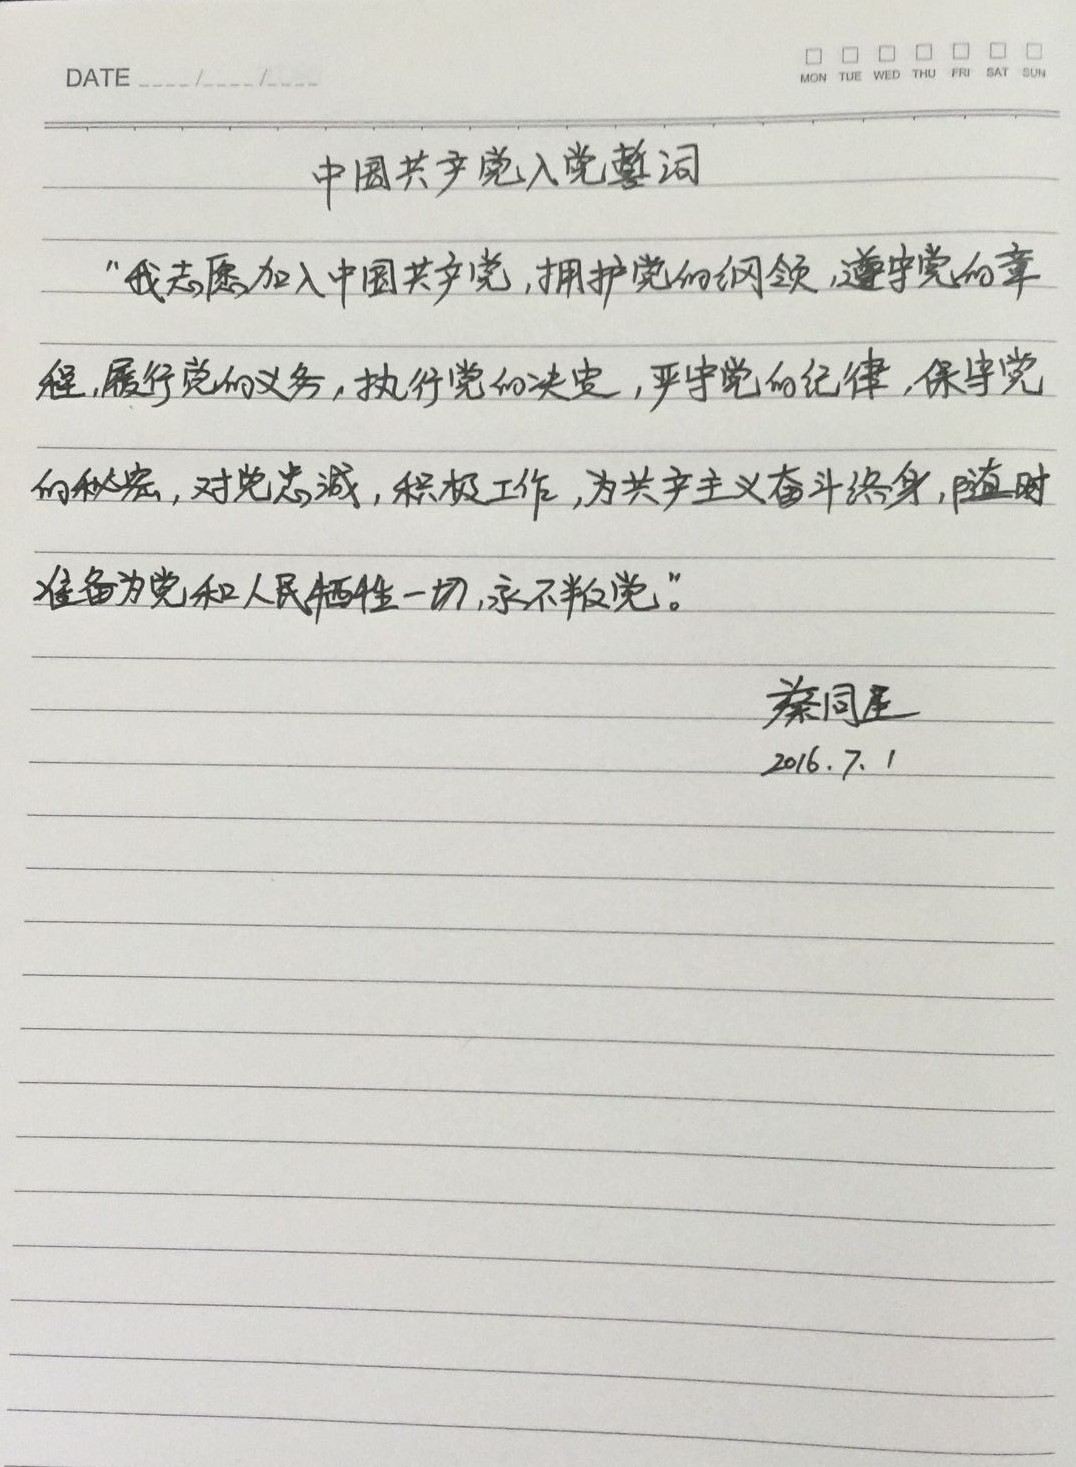 DATE ____/____/____
MON TUE WED THU FRI SAT SUN
中国共产党入党誓词
"我志愿加入中国共产党,拥护党的纲领,遵守党的章
程,履行党的义务,执行党的决定,严守党的纪律,保守党
的秘密,对党忠诚,积极工作,为共产主义奋斗终身,随时
准备为党和人民牺牲一切,永不叛党"。
蔡同
2016.7.1